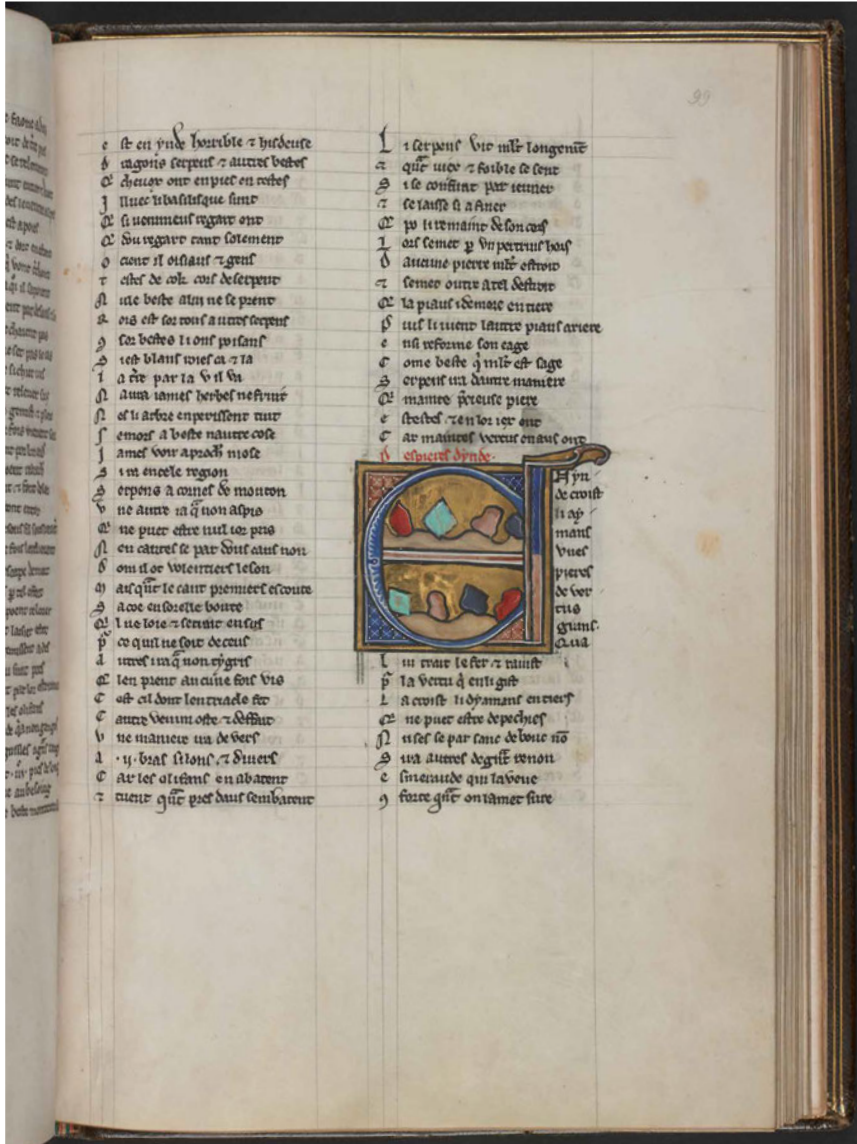 99
e st en ynde horrible ⁊ hisdeuse
d ragons serpens ⁊ autres bestes
Q cheuox ont en pies en testes
I lluec li basilisque sunt
Q si uenimeus regart ont
Q dou regart tant solement
o cient il oisiaus ⁊ gens
t estes de cok cors de serpent
N ule beste a lui ne se prent
R ois est sor tous autres serpens
9 sor bestes li ons poisans
S iest blans roies ca ⁊ la
l a tre par la v il va
N aura iames herbes ne fruit
N es li arbre en perissent tuit
S emors a beste nautre cose
J ames voir aproch nose
S i ra en cele region
S erpens a cornes de mouton
v ne autre ia q̃ non aspis
Q ne puet estre nul ior pris
N en cautes se par dous caus non
d om il ot volentiers le son
M ais qñt le cant premiers escoute
S a coe en sorelle boute
Q l ue loie ⁊ serrint en sus
p̃ co quil ne soit deceus
a utres i ra q̃ non tygris
Q len prent aucune fois vis
C est cil dont len triacle fet
C autre venim oste ⁊ deffait
v ne maniere i ra de vers
a ·ij· bras si lons ⁊ diuers
C ar les olifans en abatent
⁊ tuent qñt pres daus sembatent
L i serpens vit mlt longemt
⁊ qñt uiex ⁊ foible se sent
S i se confunt par ieuner
⁊ se laisse si afiner
Q po li remaint de son cors
L ors se met p vn pertruis hors
d aucune pierre mlt estroit
⁊ se met outre a tel destroit
Q la piaus i demore entiere
P uis li uient lautre piaus ariere
e nsi reforme son eage
C ome beste q̃ mlt est sage
S erpens i ra dautre maniere
Q mainte p̃cieuse piere
e s testes ⁊ en lor iex ont
C ar maintes vertus en aus ont
D espieres dynde·
E N yn
de croist
li ay
mans
vnes
pieres
de ver
tus
grans·
Q ua
l ui trait le fer ⁊ rauist
p̃ la vertu q̃ en li gist
L a croist li dyamans entiers
Q ne puet estre depechies
N uses se par sanc de bouc nõ
S i ra autres de gñt renon
e smeraude qui la veue
9 forte qñt on lamet sure